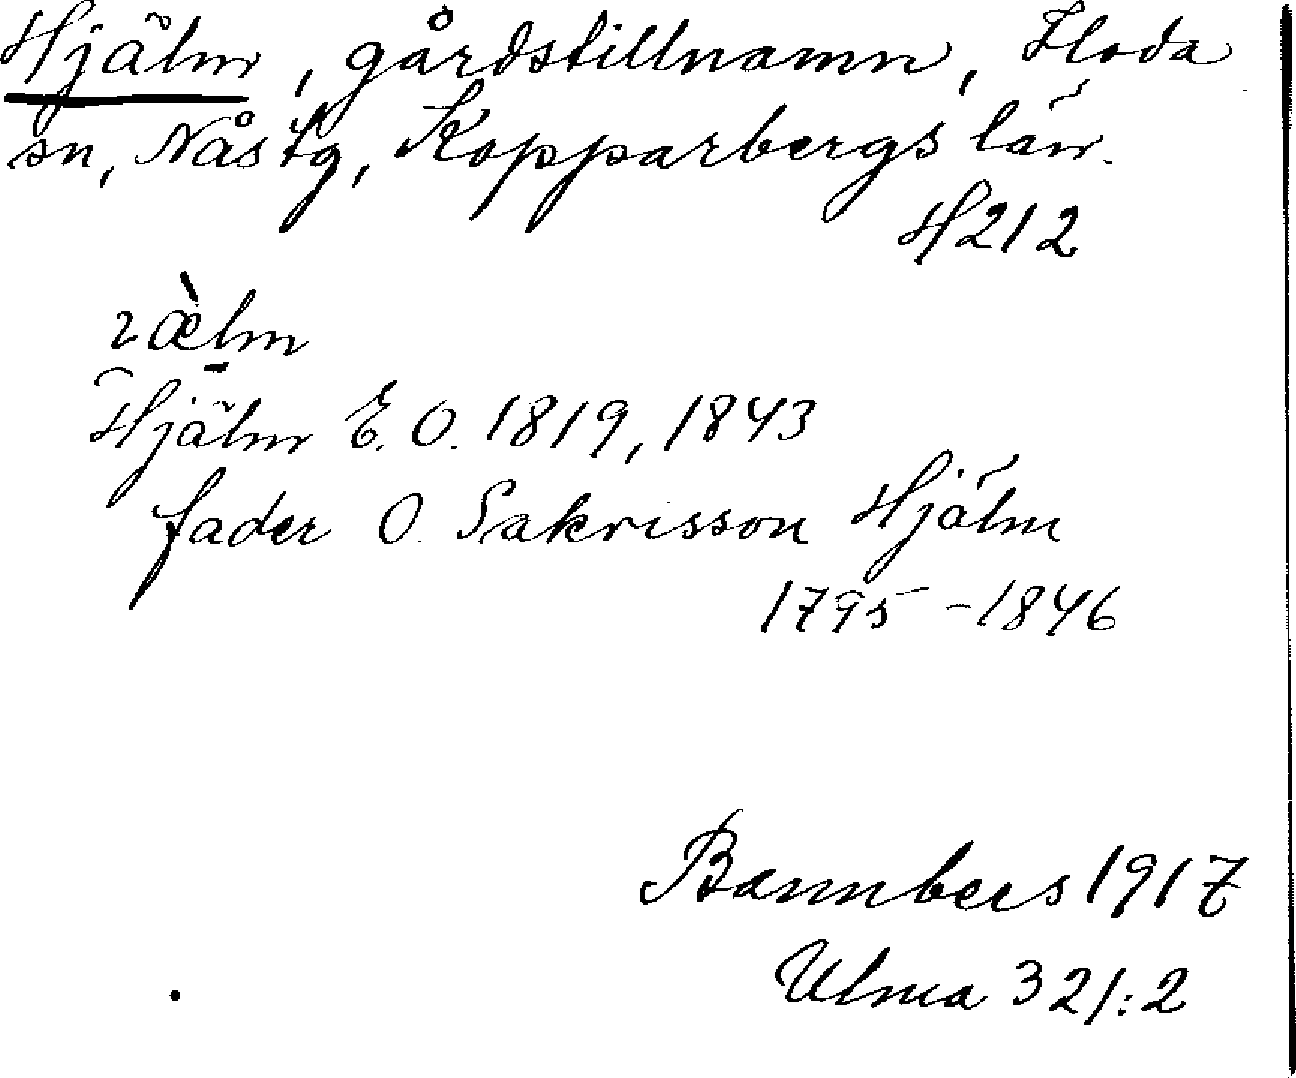 Hjälm, gårdstillnamn, Floda
sn, Nås tg, Kopparbergs län.
H212
Hjälm E. O. 1819, 1843
fader O. Sakrisson Hjälm
1795-1846
Bannbers 1917
Ulma 321:2